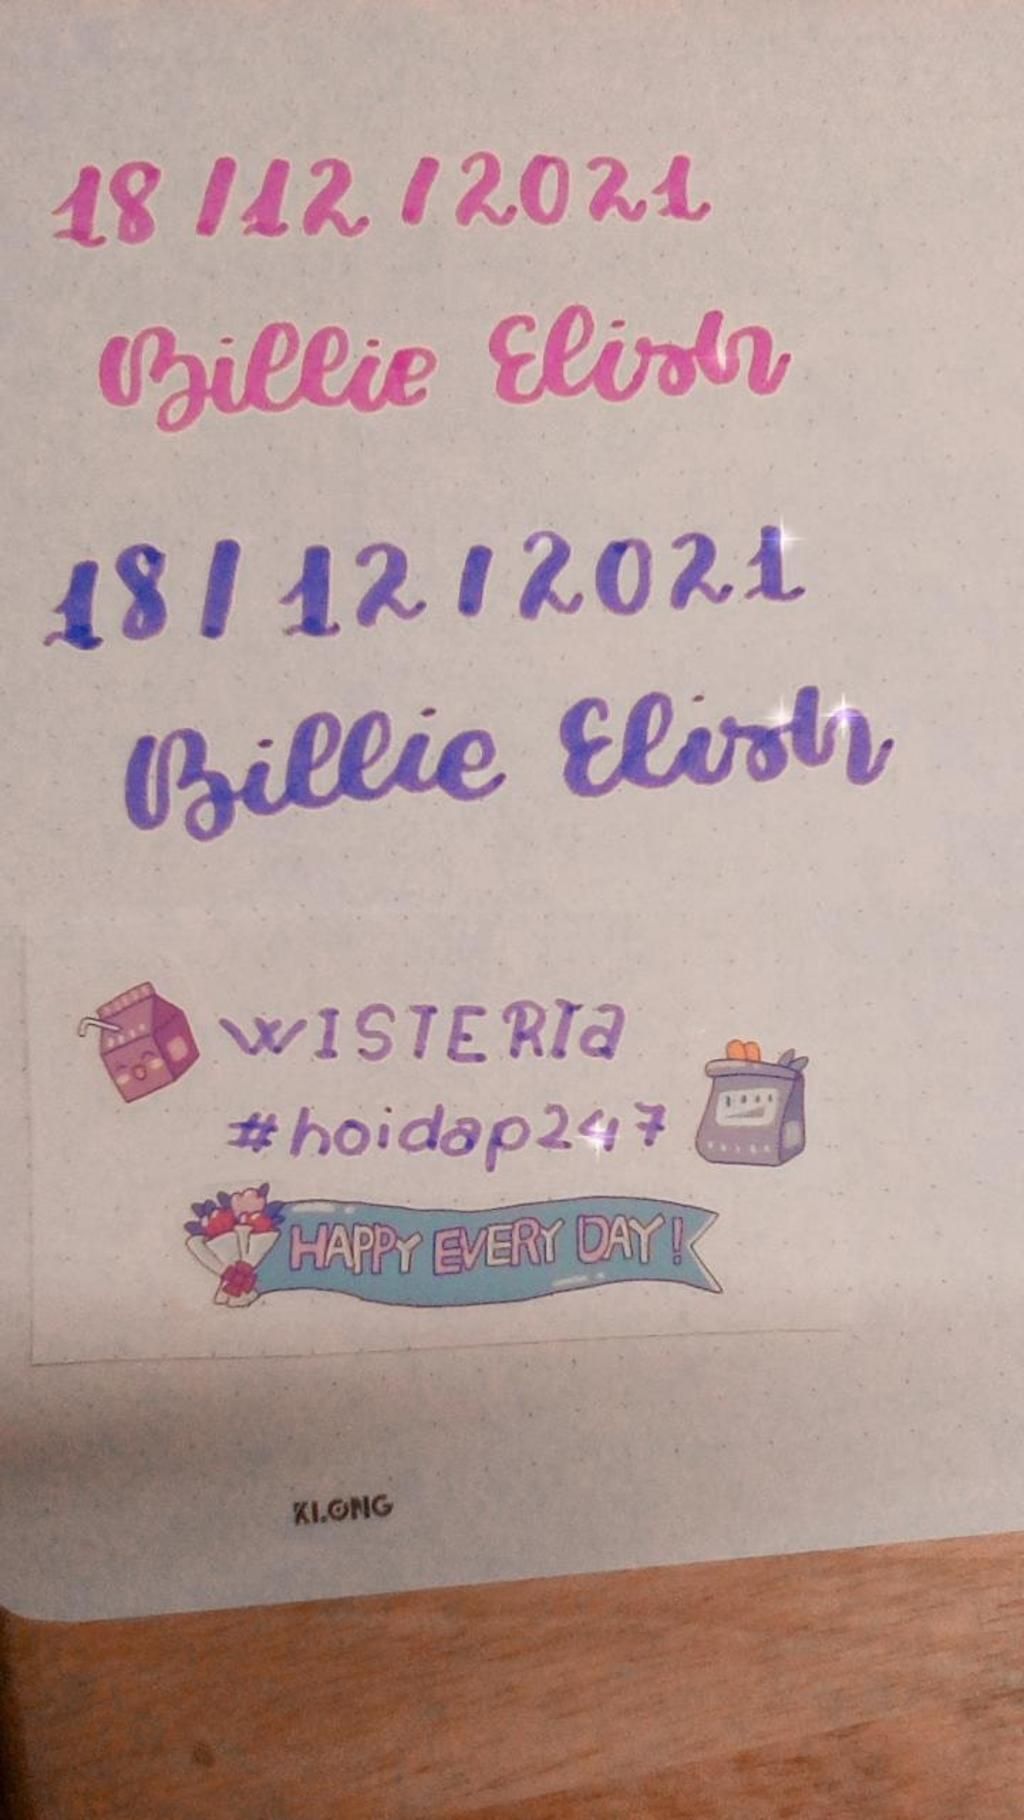 18/12/2021
Billie Elish
18/12/2021
Billie Elish
WISTERIa
#hoidap247
HAPPY EVERY DAY!
KLONG